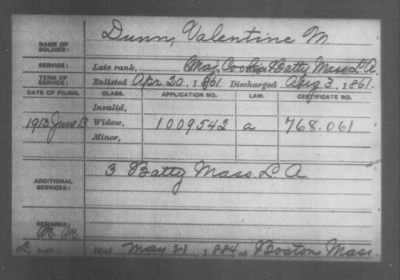 NAME OF SOLDIER: Dunn, Valentine M
SERVICE: Late rank, Maj. Cook's Batty Mass L.A.
TERM OF SERVICE: Enlisted Apr. 20, 1861. Discharged Aug 3, 1861.
DATE OF FILING. CLASS. APPLICATION NO. LAW. CERTIFICATE NO.
Invalid,
1913 Widow, 1009542 a 768.061
Minor,
ADDITIONAL SERVICES: 3 Batty Mass. L A
REMARKS:
May 21, 1884 at Boston Mass.